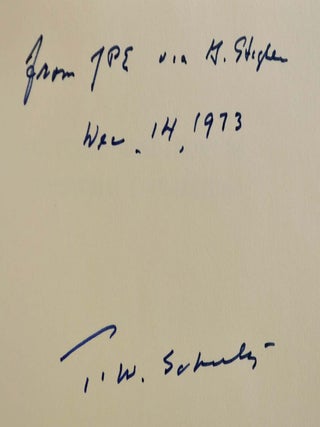 from JPE via G. Stigler
Dec. 14, 1973
T. W. Schultz